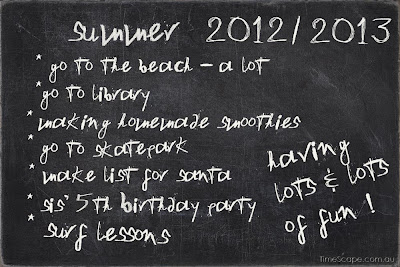 summer 2012/2013
* go to the beach - a lot
* go to library
* making homemade smoothies
* go to skatepark
* make list for santa
* sis' 5th birthday party
* surf lessons
having
lots & lots
of fun!
TimeScape.com.au